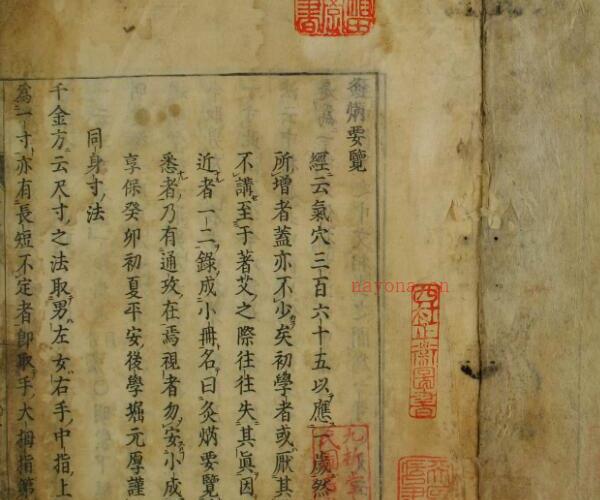 灸焫要覽
經云氣穴三百六十五以應一歲然
所增者蓋亦不少矣初學者或厭其
不講至于著艾之際往往失其眞因
近者一二錄成小冊名曰灸焫要覽
悉者乃有通攷在焉視者勿安小成
享保癸卯初夏平安後學堀元厚謹
同身寸法
千金方云尺寸之法取男左女右手中指上
爲一寸亦有長短不定者卽取手大拇指第
nayona.cn